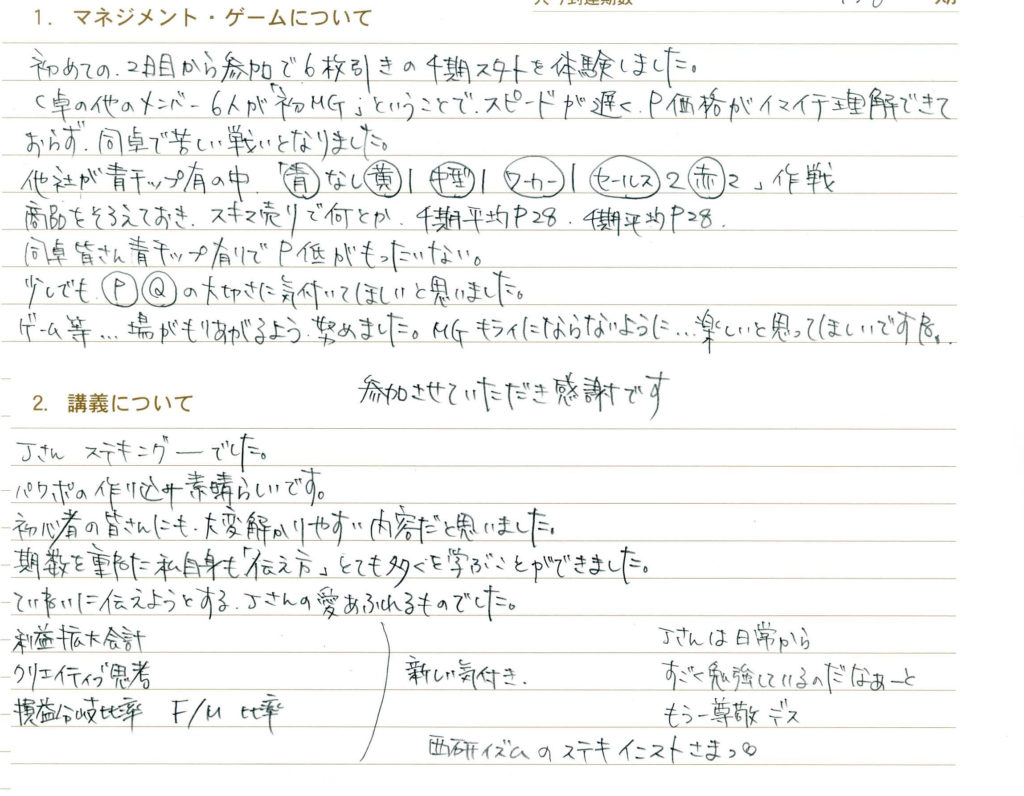 1. マネジメント・ゲームについて
初めての、2日目から参加で6枚引きの4期スタートを体験しました。
C卓の他のメンバー6人が「初MG」ということで、スピードが遅く、P価格がイマイチ理解できて
おらず、同卓で苦しい戦いとなりました。
他社が青チップ有の中、「青なし黄1中型1ワーカー1セールス2赤2」作戦
商品をそろえておき、スキマ売りで何とか、4期平均P28、4期平均P28、
同卓皆さん青チップ有りでP低がもったいない。
少しでも、PQの大切さに気付いてほしいと思いました。
ゲーム等…場がもりあがるよう、努めました。MGキライにならないように…楽しいと思ってほしいです
参加させていただき感謝です
2. 講義について
Jさん ステキングーでした。
パワポの作り込み素晴らしいです。
初心者の皆さんにも、大変解かりやすい内容だと思いました。
期数を重ねた私自身も「伝え方」とても多くを学ぶことができました。
ていねいに伝えようとする、Jさんの愛あふれるものでした。
利益拡大会計
クリエイティブ思考
損益分岐比率 F/M 比率
新しい気付き、
Jさんは日常から
すごく勉強しているのだなぁーと
もうー尊敬デス
西研イズムのステキイニストさまっ